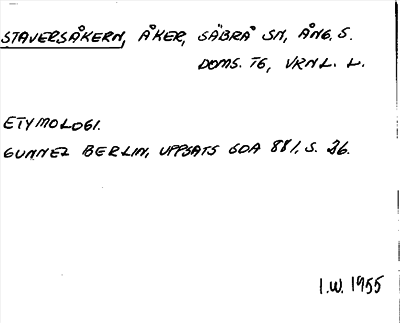 STAVERSÅKERN, ÅKER, SÄBRÅ SN, ÅNG. S.
DOMS. TG, VRNL. L.
ETYMOLOGI.
GUNNEL BERLIN, UPPSATS GDA 881, S. 26.
I.W. 1955